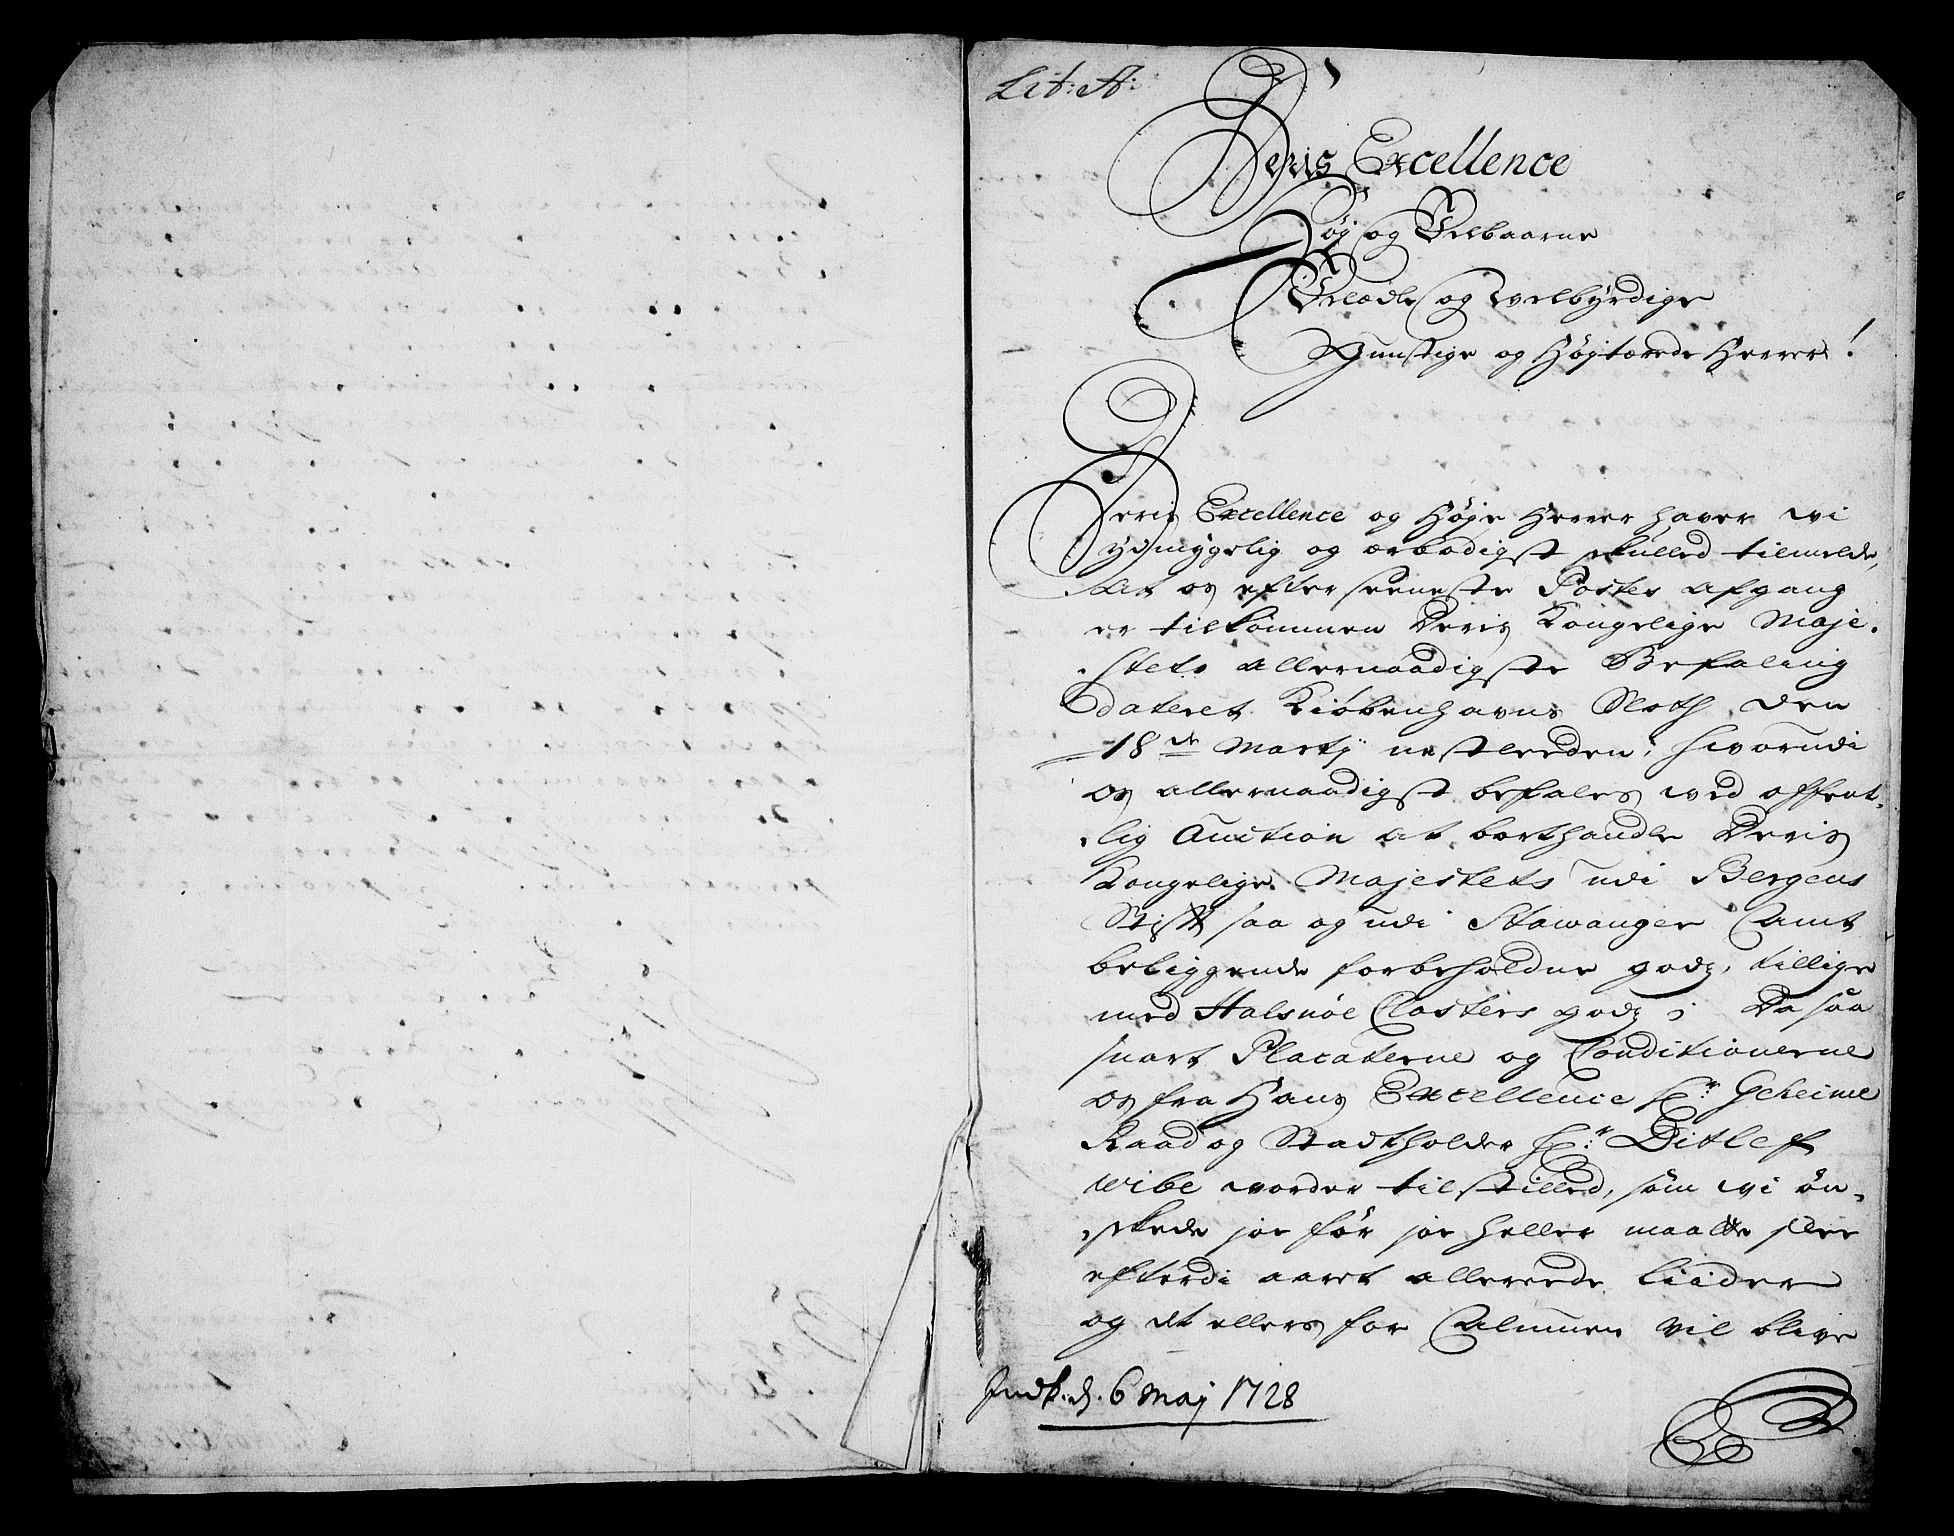 Lit: A:
Deris Excellence
Høy og Velbaarne
Velædle og Welbyrdige
Gunstige og Høytærede Herrer!
Deris Excellence og Høye Herrer haver wi
ydmygelig og ærbødigst skulled tilmelde,
at os efter seeneste Postes afgang
er tilkommen Deris Kongelige Maje-
stets allernaadigste Befaling
dateret Kiøbenhavns Sloth den
18de Martÿ nestleeden, hvorudi
os allernaadigst befales ved offent-
lig Auction at borthandle Deris
Kongelige Majestets udi Bergens
Stift saa og udi Stawanger Amt
beliggende forbeholdne godz, tillige
med Halsnøe Closters godz; Da saa
snart Placaterne og Conditionerne
os fra Hans Excellence Hr: Geheime
Raad og Stadtholder Hr: Ditlef
Wibe vorder tilstilled, som wi øn-
skede joe før joe heller maatte skee
efterdi aaret allereede liider
og det ellers for Almuen vil blive
Indk. d. 6 Maÿ 1728